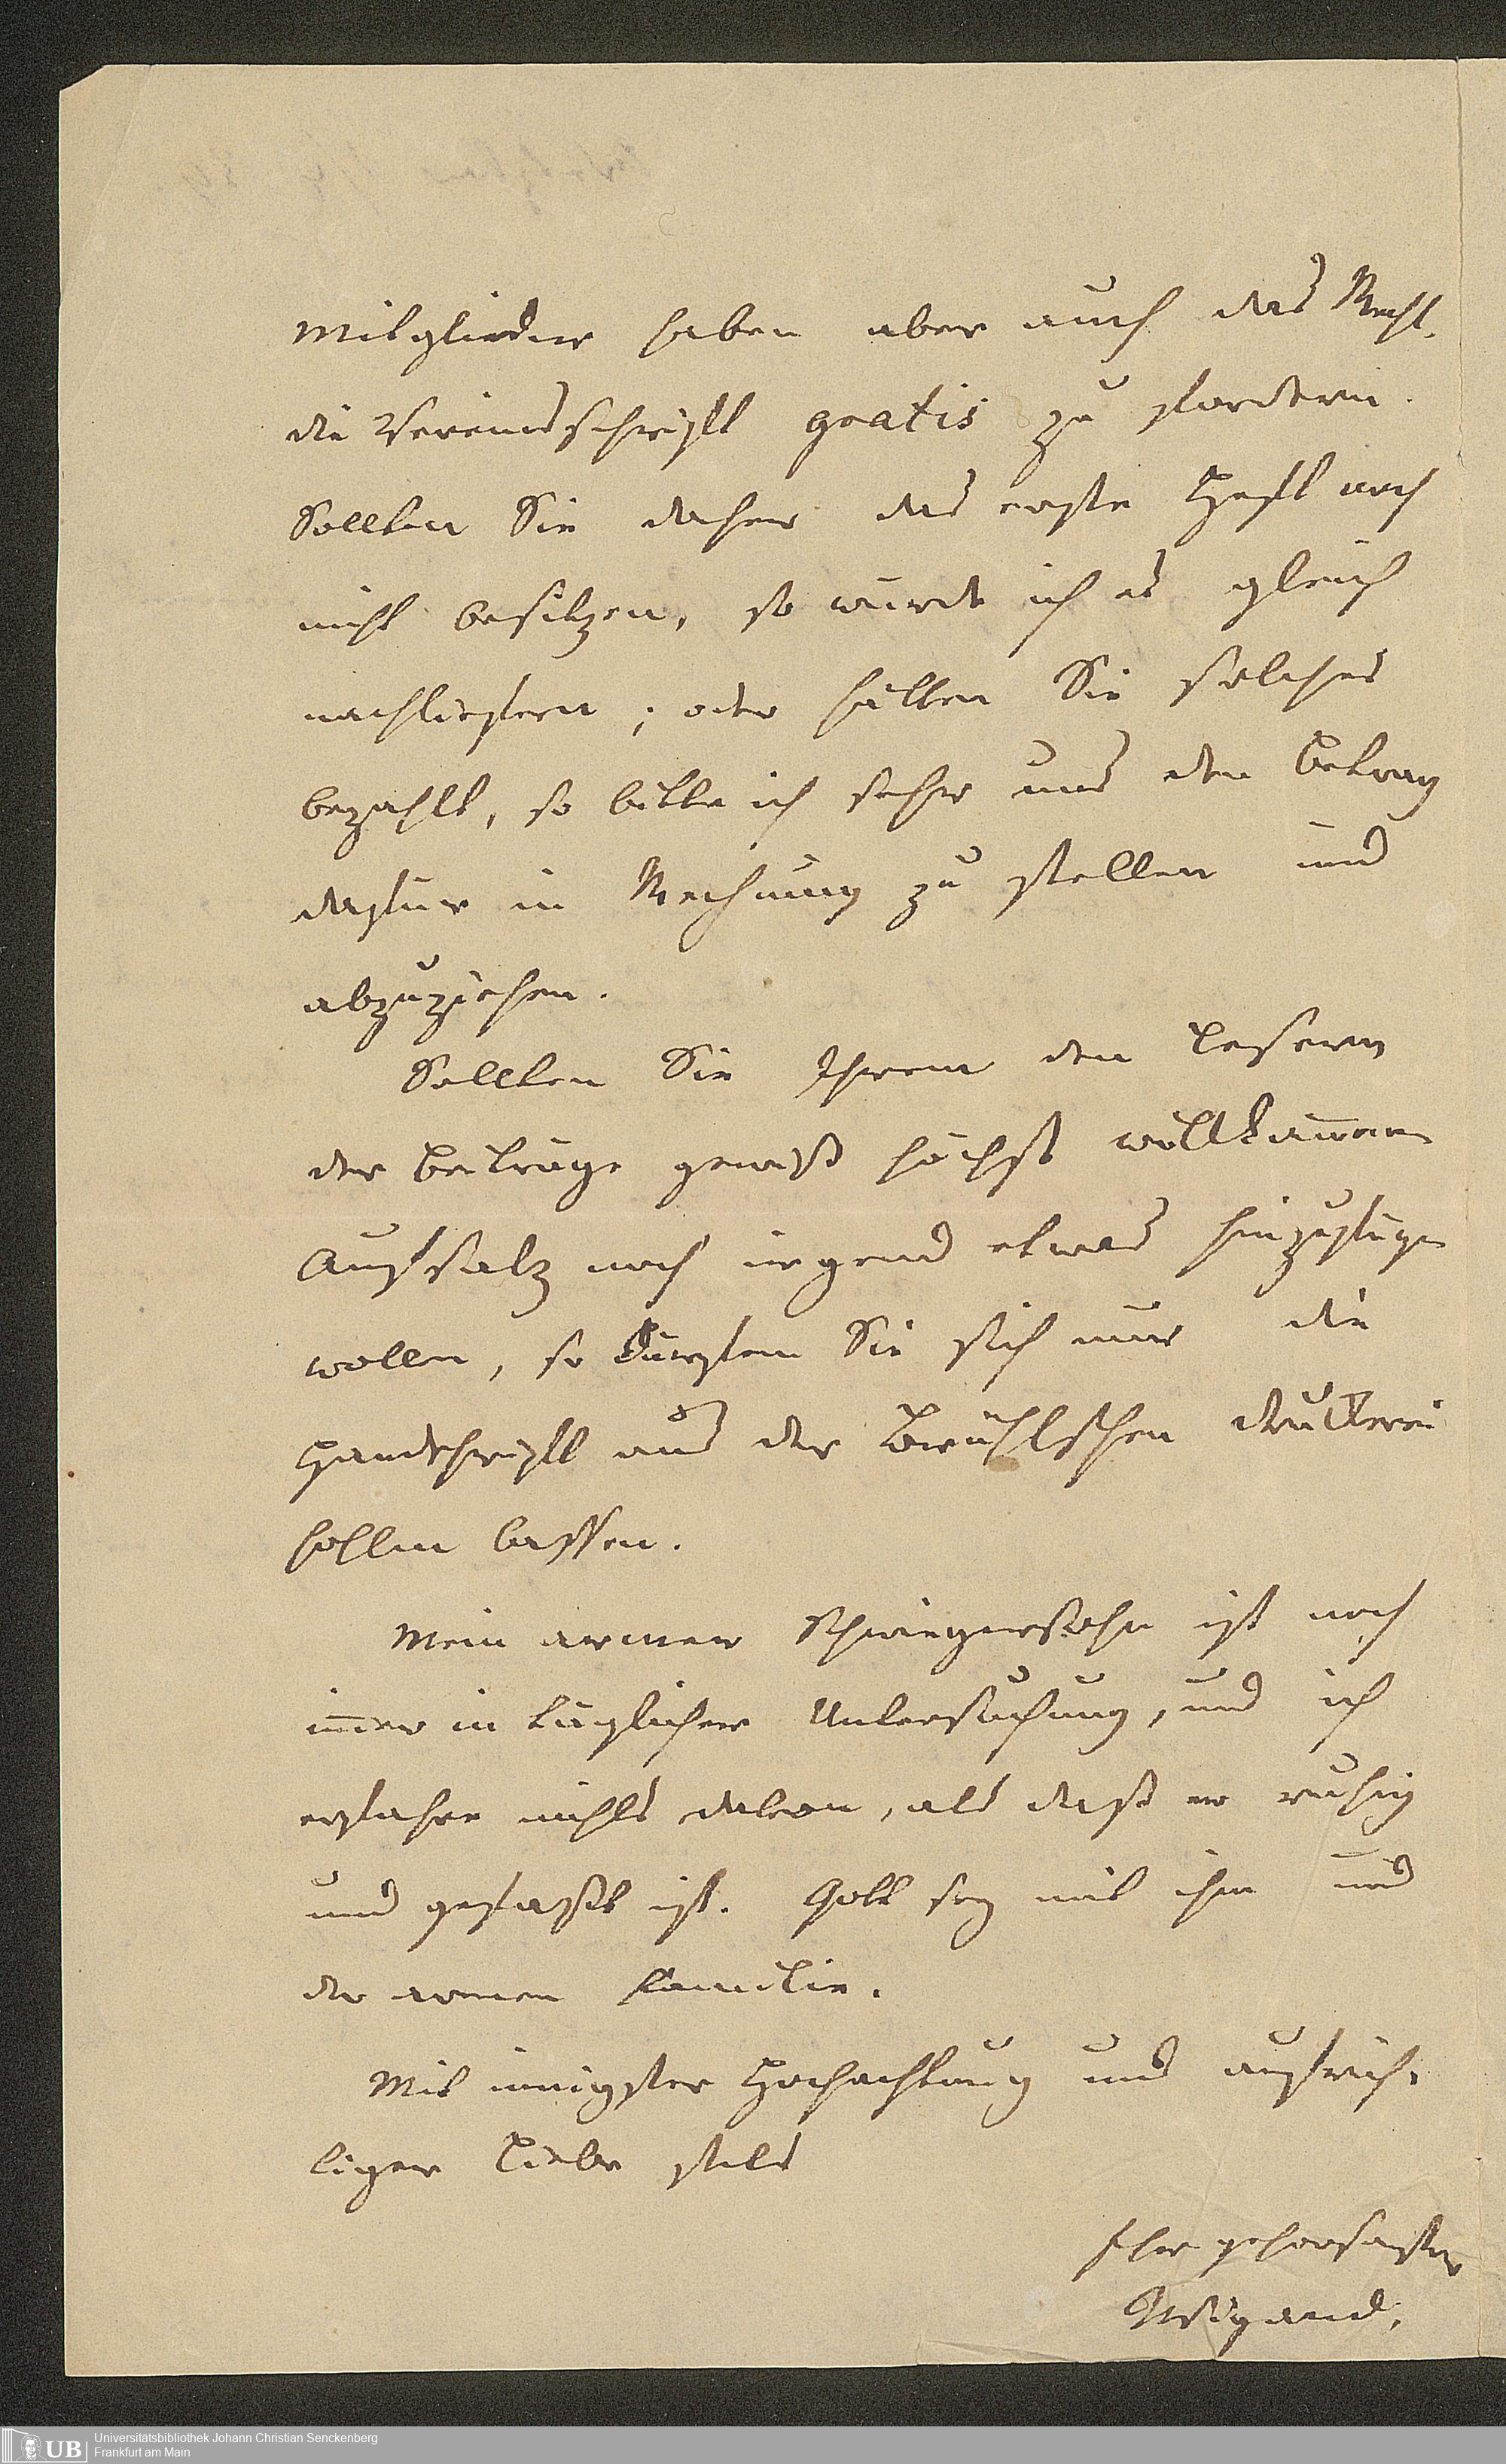 Mitglieder haben aber auch das Recht,
die Vereinsschrift gratis zu fordern.
Sollten Sie daher das erste Heft noch
nicht besitzen, so würde ich es gleich
nachliefern; oder hätten Sie solches
bezahlt, so bitte ich sehr uns den Betrag
dafür in Rechnung zu stellen und
abzuziehen.
Sollten Sie Ihrem den Lesern
der Beiträge gewiß höchst willkom̅nen
Aufsatz noch irgend etwas hinzufügen
wollen, so dürften Sie sich nur die
Handschrift aus der Brühlschen Druckerei
hohlen lassen.
Mein armer Schwiegersohn ist noch
im̅er in täglicher Untersuchung, und ich
erfahre nichts davon, als daß er ruhig
und gefaßt ist. Gott sey mit ihm und
der armen Familie.
Mit innigster Hochachtung und aufrich-
tiger Liebe stets
Ihr gehorsamster
Wigand.
UB
Universitätsbibliothek Johann Christian Senckenberg
Frankfurt am Main